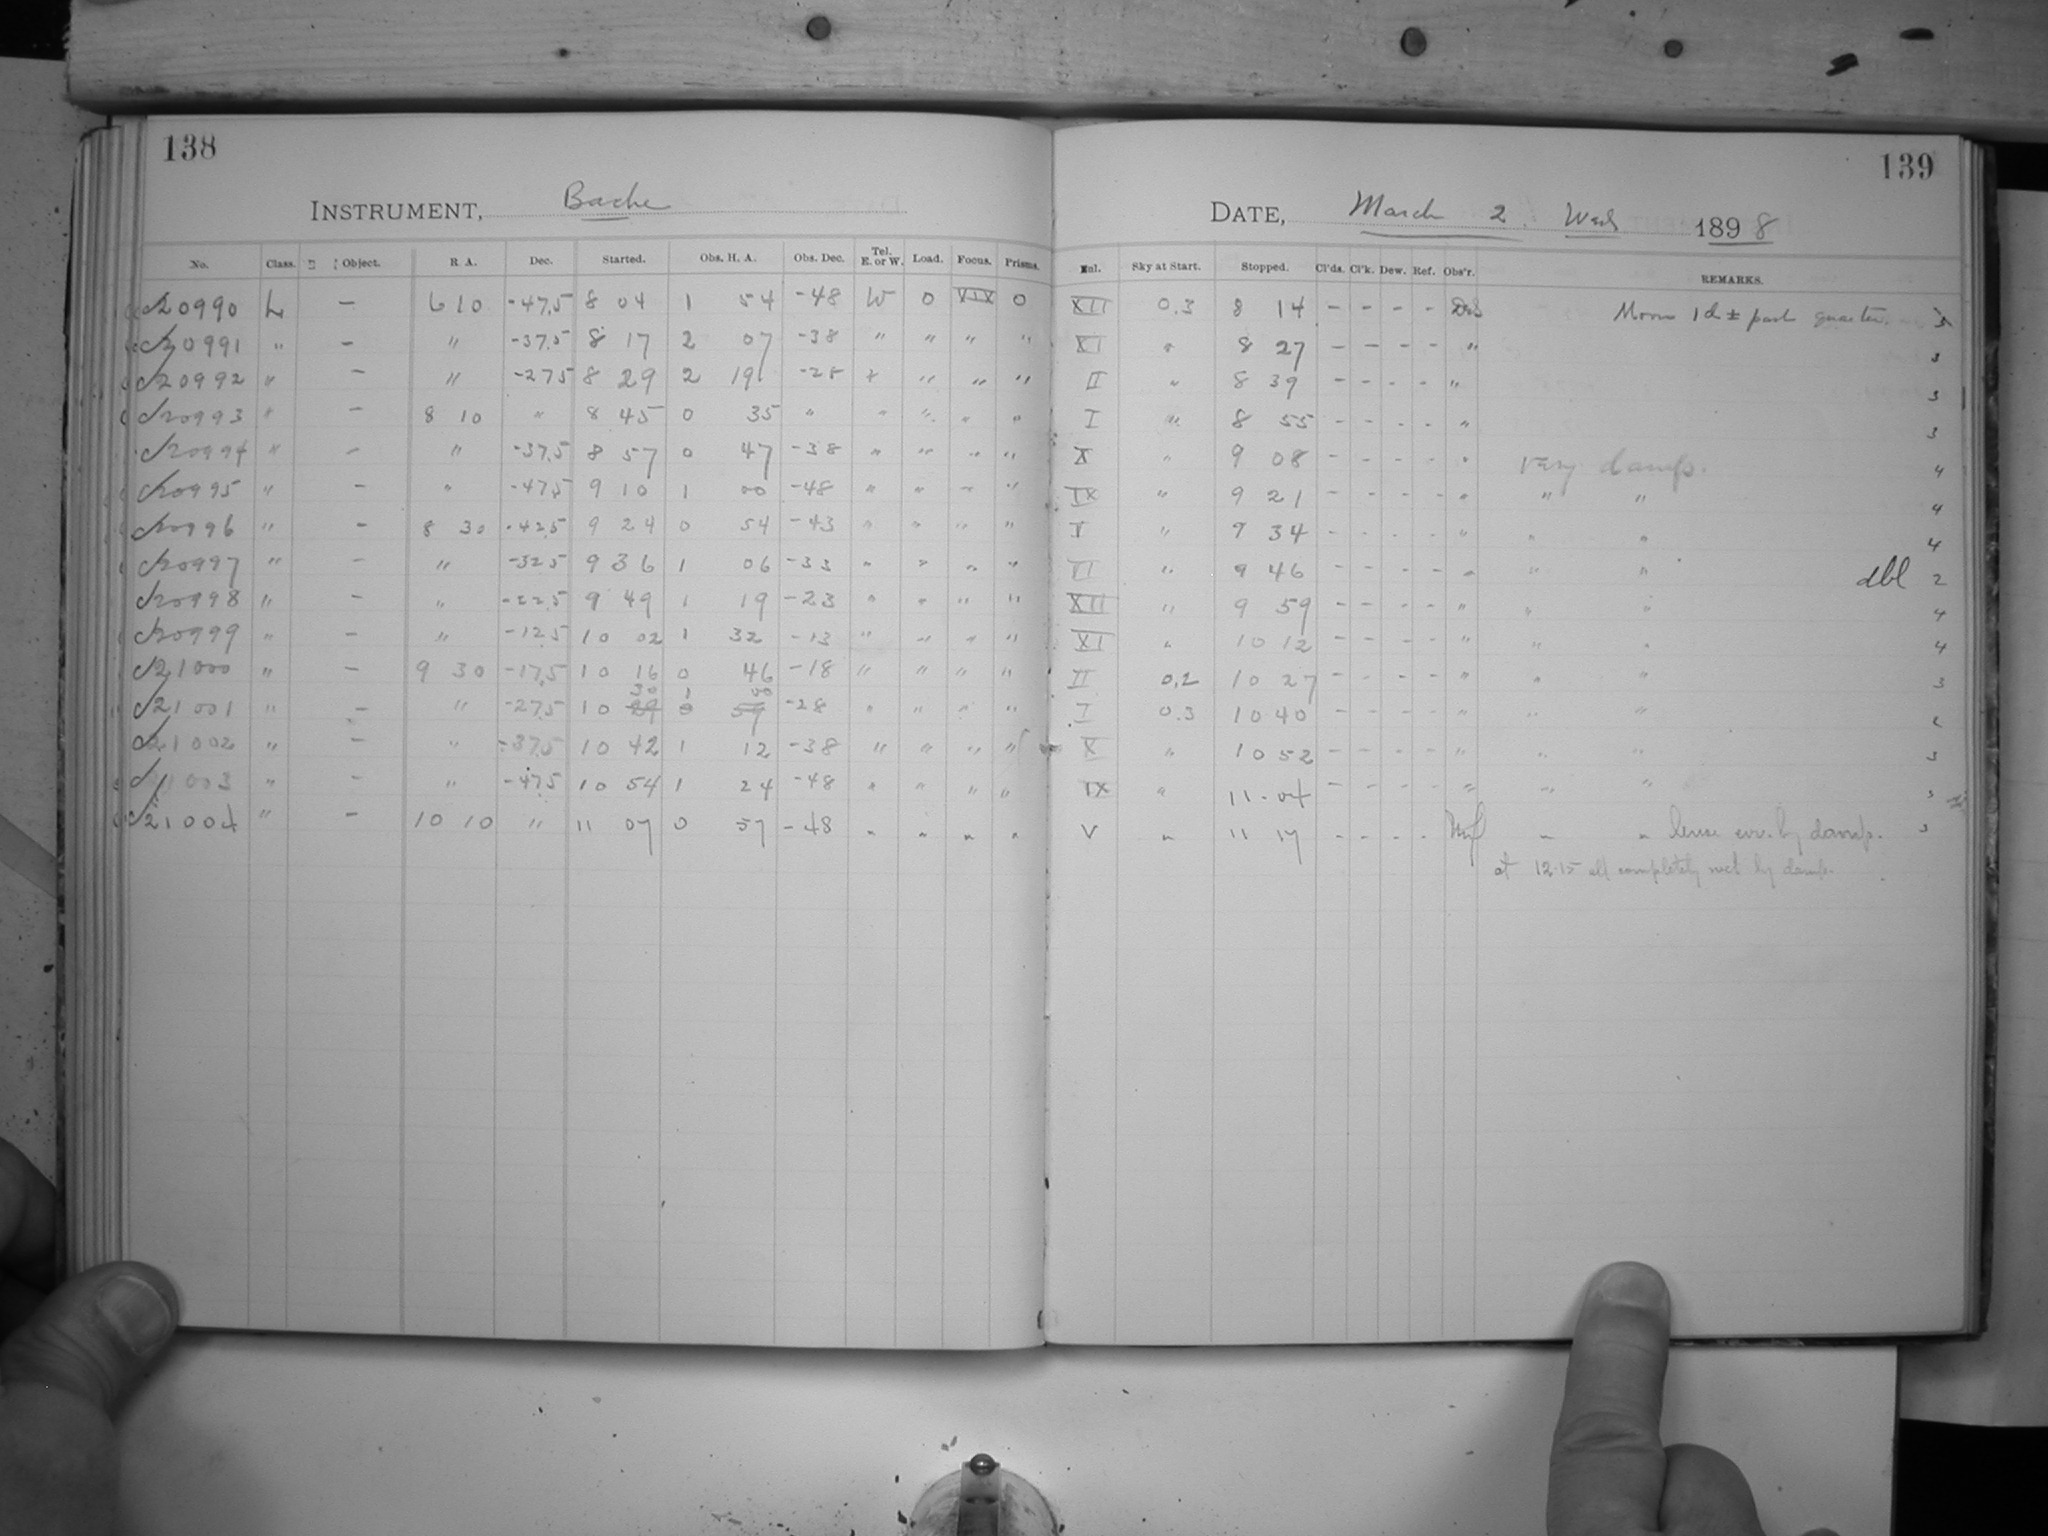 138
INSTRUMENT, Bache
No. Class. Object. R. A. Dec. Started. Obs. H. A. Obs. Dec. Tel. E. or W. Load. Focus. Prisms.
20990 L — 6 10 -47.5 8 04 1 54 -48 W 0 XIX 0
20991 " — " -37.5 8 17 2 07 -38 " " " "
20992 " — " -27.5 8 29 2 19 -28 " " " "
20993 " — 8 10 " 8 45 0 35 " " " " "
20994 " — " -37.5 8 57 0 47 -38 " " " "
20995 " — " -47.5 9 10 1 00 -48 " " " "
20996 " — 8 30 -42.5 9 24 0 54 -43 " " " "
20997 " — " -32.5 9 36 1 06 -33 " " " "
20998 " — " -22.5 9 49 1 19 -23 " " " "
20999 " — " -12.5 10 02 1 32 -13 " " " "
21000 " — 9 30 -17.5 10 16 0 46 -18 " " " "
30 1 00
21001 " — " -27.5 10 29 0 59 -28 " " " "
21002 " — " -37.5 10 42 1 12 -38 " " " "
21003 " — " -47.5 10 54 1 24 -48 " " " "
21004 " — 10 10 " 11 07 0 57 -48 " " " "
139
DATE, March 2. Wed 1898
Sky at Start. Stopped. Cl'ds. Cl'k. Dew. Ref. Obs'r. REMARKS.
XII 0.3 8 14 - - - - Moon 1d ± past quarter. 3
XI " 8 27 - - - - " 3
II " 8 39 - - - - " 3
I " 8 55 - - - - " 3
X " 9 08 - - - - " very damp. 4
IX " 9 21 - - - - " " " 4
V " 9 34 - - - - " " " 4
VI " 9 46 - - - - " " " dbl 2
XII " 9 59 - - - - " " " 4
XI " 10 12 - - - - " " " 4
II 0.2 10 27 - - - - " " " 3
I 0.3 10 40 - - - - " " "
X " 10 52 - - - - " " " 3
IX " 11.04 - - - - " " " 3
V " 11 17 - - - - " " lense cov. by damp. 3
at 12.15 all completely wet by damp.